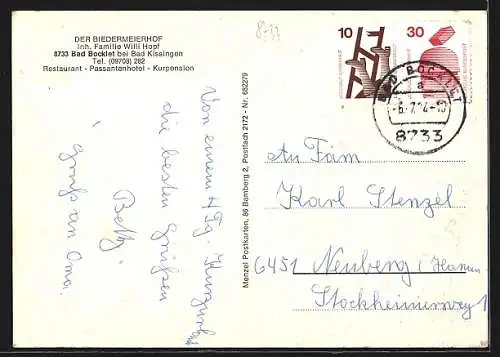 DER BIEDERMEIERHOF
Inh. Familie Willi Hopf
8733 Bad Bocklet bei Bad Kissingen
Tel. (09708) 282
Restaurant - Passantenhotel - Kurpension
8733
10
30
BAD BOCKLET
a
8733
Von einem 4 Tg. Kurzurlaub
die besten Grüßen
Betty
Gruß an Oma.
Menzel Postkarten, 86 Bamberg 2, Postfach 2172 - Nr. 682279
An Fam
Karl Stenzel
6451 Neuberg (Hanau
Stockheimerweg 1